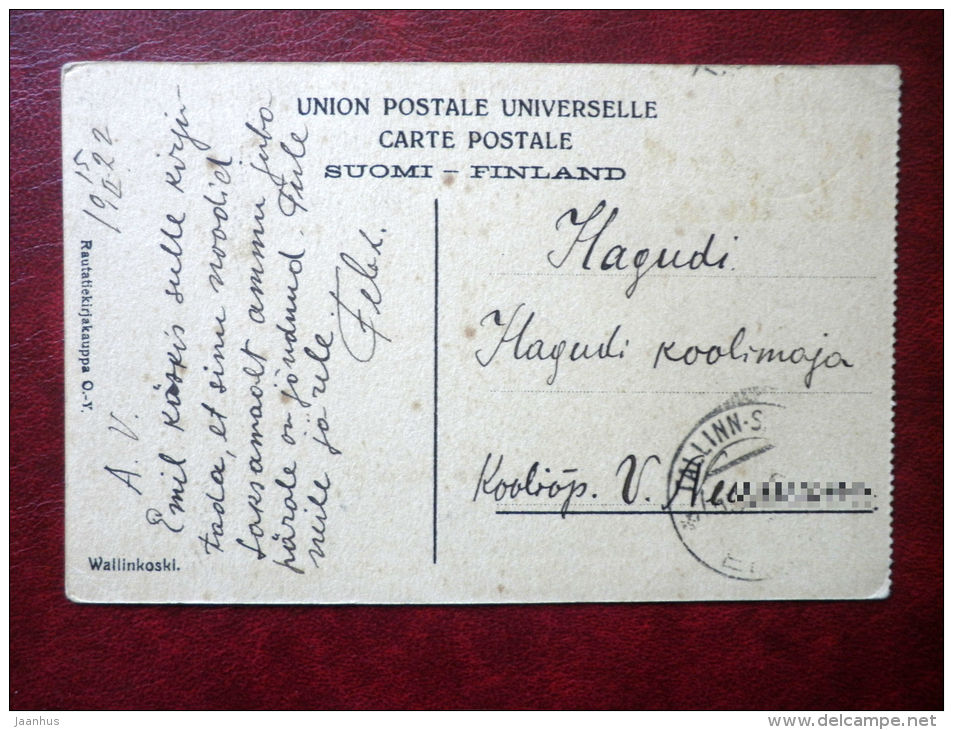 UNION POSTALE UNIVERSELLE
CARTE POSTALE
SUOMI – FINLAND
Rautatiekirjakauppa O.-Y.
Wallinkoski.
19 15/II 22
A. V.
Emil käskis sulle kirju-
tada, et sinu noodid
Saksamaalt ammu juba
pärale on jõudnud. Tule
neile järele!
Hagudi
Hagudi koolimaja
Kooliõp. V.
TALLINN-S
Jaanhus
www.delcampe.net